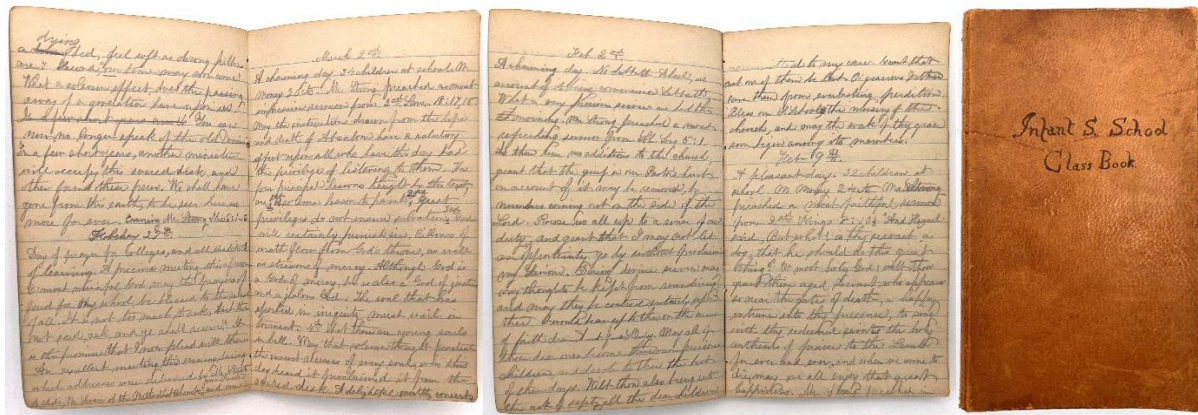 dying
a bed, feel soft as downy pillows
are." Second, our town may soon come.
What a solemn effect, does the passing
away of a generation have upon us!
In a few short years
now no longer speak of the old Divine
In a few short years, another minister
will occupy this sacred desk, and
other friends these pews. We shall have
gone from this earth, to be seen here no
more for ever. Evening Mr. Strong
February 27th
Day of prayer for Colleges, and all institutions
of learning. A precious meeting this afternoon
O most merciful God may the prayers of-
fered for my school, be blessed to the good
of all. It is not too much to ask, but thou
hast said ask and ye shall receive. It
is this promise that I now plead with thee
An excellent meeting this evening during
which addresses were delivered by
March 2nd.
A charming day. 30 children at school. M.
Money 20cts. Mr. Strong preached a most
impressive sermon from 2nd Sam. 18:17,18
May the instruction drawn from the life
and death of Absalom have a salutary
effect upon all who have this day had
the privilege of listening to them. The
four principal lessons taught by
are 1st Solemn lesson to parents. 2nd Great
privileges do not ensure salvation. 3rd God
will certainly punish sin. Billows of
wrath flow from God's throne, as well
as streams of mercy. Although God is
a God of mercy, he is also a God of justice
and a jealous God. The soul that has
sported in iniquity must wail in
torment. 4th that there are young souls
in hell. May that solemn thought penetrate
the inmost recesses of every soul, who this
day heard it proclaimed it from the
sacred desk.
Feb. 2nd.
A charming day. No Sabbath School, on
account of its being communion Sabbath
What a very precious season we had this
morning. Mr. Strong preached a most
refreshing sermon from Sol. Song 5:1.
As there been no additions to the church
grant that the grief in our Pastor's heart
on account of it may be removed by
numbers coming out on the side of the
Lord. Rouse us all up to a sense of our
duty, and grant that I may not let
an opportunity go by without proclaim
my Saviour. During divine service may
my thoughts be kept from wandering,
and may they be centred entirely upon
thee. O wouldst thou up to thee on the arms
of faith
thou dear ones
children, and
of their days. Wilt thou also bring into
the ark of safety, all the dear children
committed to my care. Grant that
not one of them be lost. O gracious Father
save them from everlasting perdition.
Bless our School, the nursery of the
church, and may the work of thy grace
soon begin among its members.
Feb. 9th.
A pleasant day. 32 children at
school. M. Money 2 cts. Mr. Strong
preached a most faithful sermon
from 2nd Kings 8:13. "And Hazael
said, But what, is thy servant a
dog, that he should do this great
thing?" O most holy God, wilt thou
grant thine aged servant, who appears
so near the gates of death, a happy
entrance into thy presence, to sing
with thy redeemed saints the holy
anthems of praise to the Lamb
for ever and ever, and when we come to
die, may we all enjoy that great
happiness. Mr. Strong preached in
Infant S. School
Class Book.